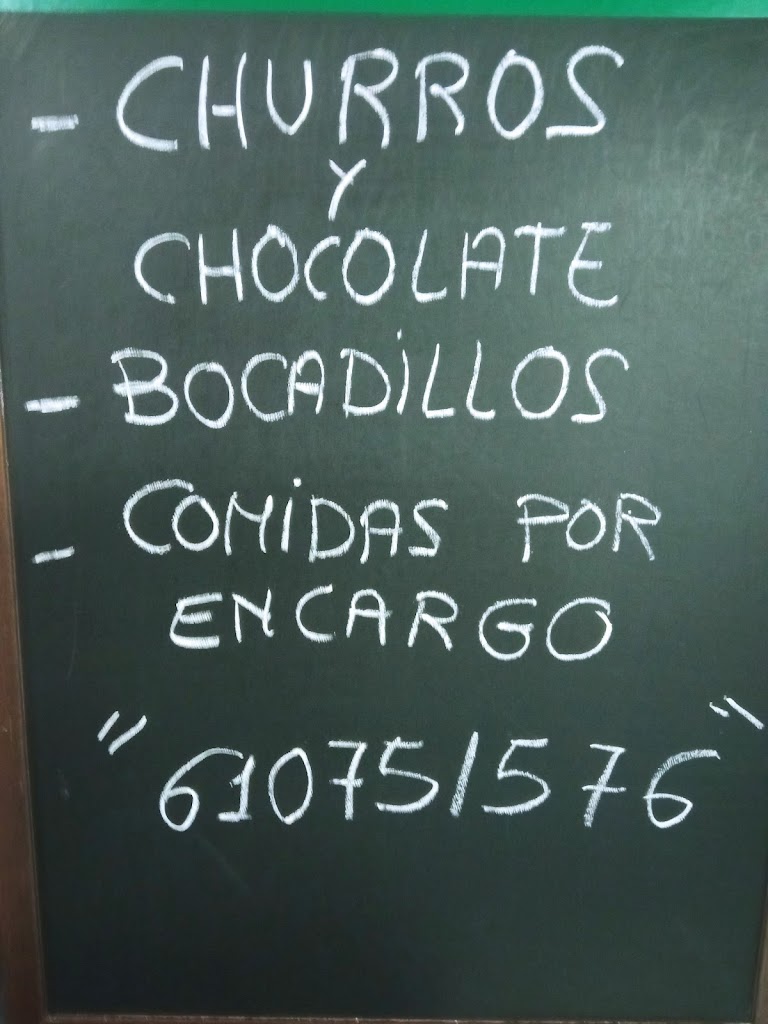 - CHURROS
Y
CHOCOLATE
- BOCADiLLOS
- COMiDAS POR
ENCARGO
"610751576"